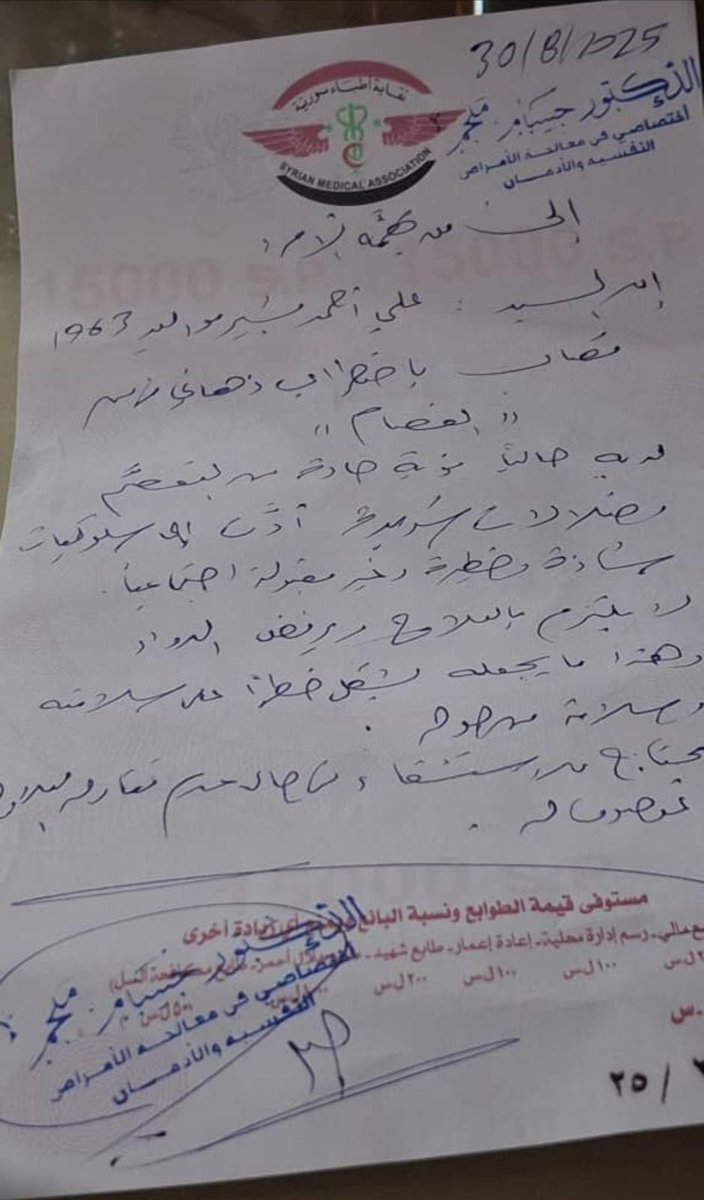 30/8/2025
نقابة أطباء سورية
SYRIAN MEDICAL ASSOCIATION
الدكتور جيكر ملحم
اختصاصي في معالجة الأمراض
النفسية والأدمان
15000 S.P 15000 S.P
إلى من يهمه الأمر:
إن السيد : علي أحمد مواليد 1963
مصاب باضطراب ذهاني مزمن
"الفصام"
لديه حالياً نوبة حادة من
وضلالات أدّت إلى سلوكيات
شاذة وخطرة وغير مقبولة اجتماعياً.
لا يلتزم بالعلاج ويرفض الدواء
وهذا ما يجعله يشكل خطراً على سلامته
وسلامة من حوله .
يحتاج استشفاء في حال عدم
15000 S.P
مستوفى قيمة الطوابع ونسبة البالغ أي زيادة أخرى
مالي- رسم إدارة محلية- إعادة إعمار- طابع شهيد- هلال أحمر- طابع مكافحة السل)
١٠٠ل.س ١٠٠ل.س ٢٠٠ل.س
الدكتور جيكر ملحم
اختصاصي في معالجة الأمراض
النفسية والأدمان
ل.س
٢٥ /